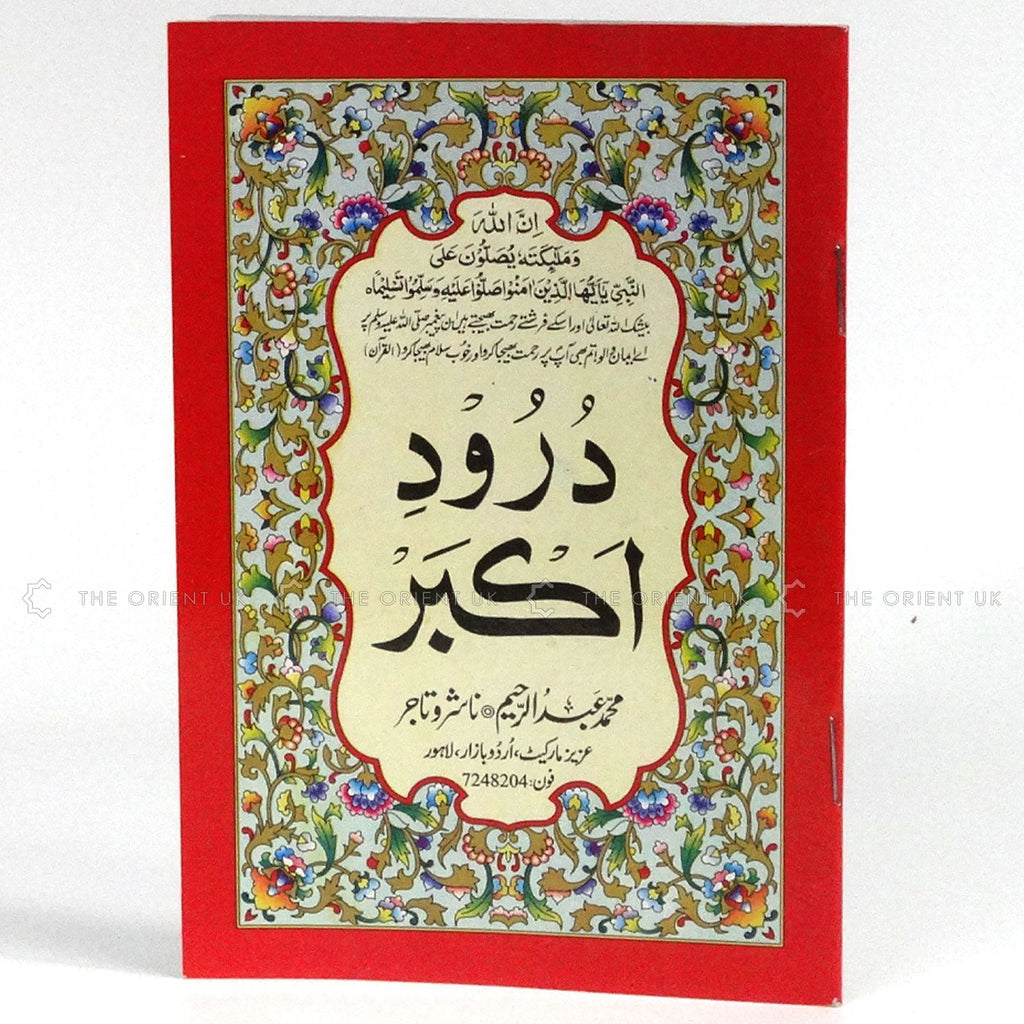 اِنَّ اللّٰهَ
وَمَلٰٓئِکَتَهٗ یُصَلُّوْنَ عَلَی
النَّبِیِّ یٰٓاَیُّهَا الَّذِیْنَ اٰمَنُوْا صَلُّوْا عَلَیْهِ وَسَلِّمُوْا تَسْلِیْمًا ہ
بیشک اللہ تعالیٰ اور اسکے فرشتے رحمت بھیجتے ہیں ان پیغمبر صلی اللہ علیہ وسلم پر
اے ایمان والو تم بھی آپؐ پر رحمت بھیجا کرو اور خوب سلام بھیجا کرو (القرآن)
دُرُوْدِ
اَکْبَرْ
THE ORIENT UK THE ORIENT UK THE ORIENT UK
محمّد عَبدُ الرّحیم ناشر و تاجر
عزیز مارکیٹ، اُردو بازار، لاہور
فون: 7248204